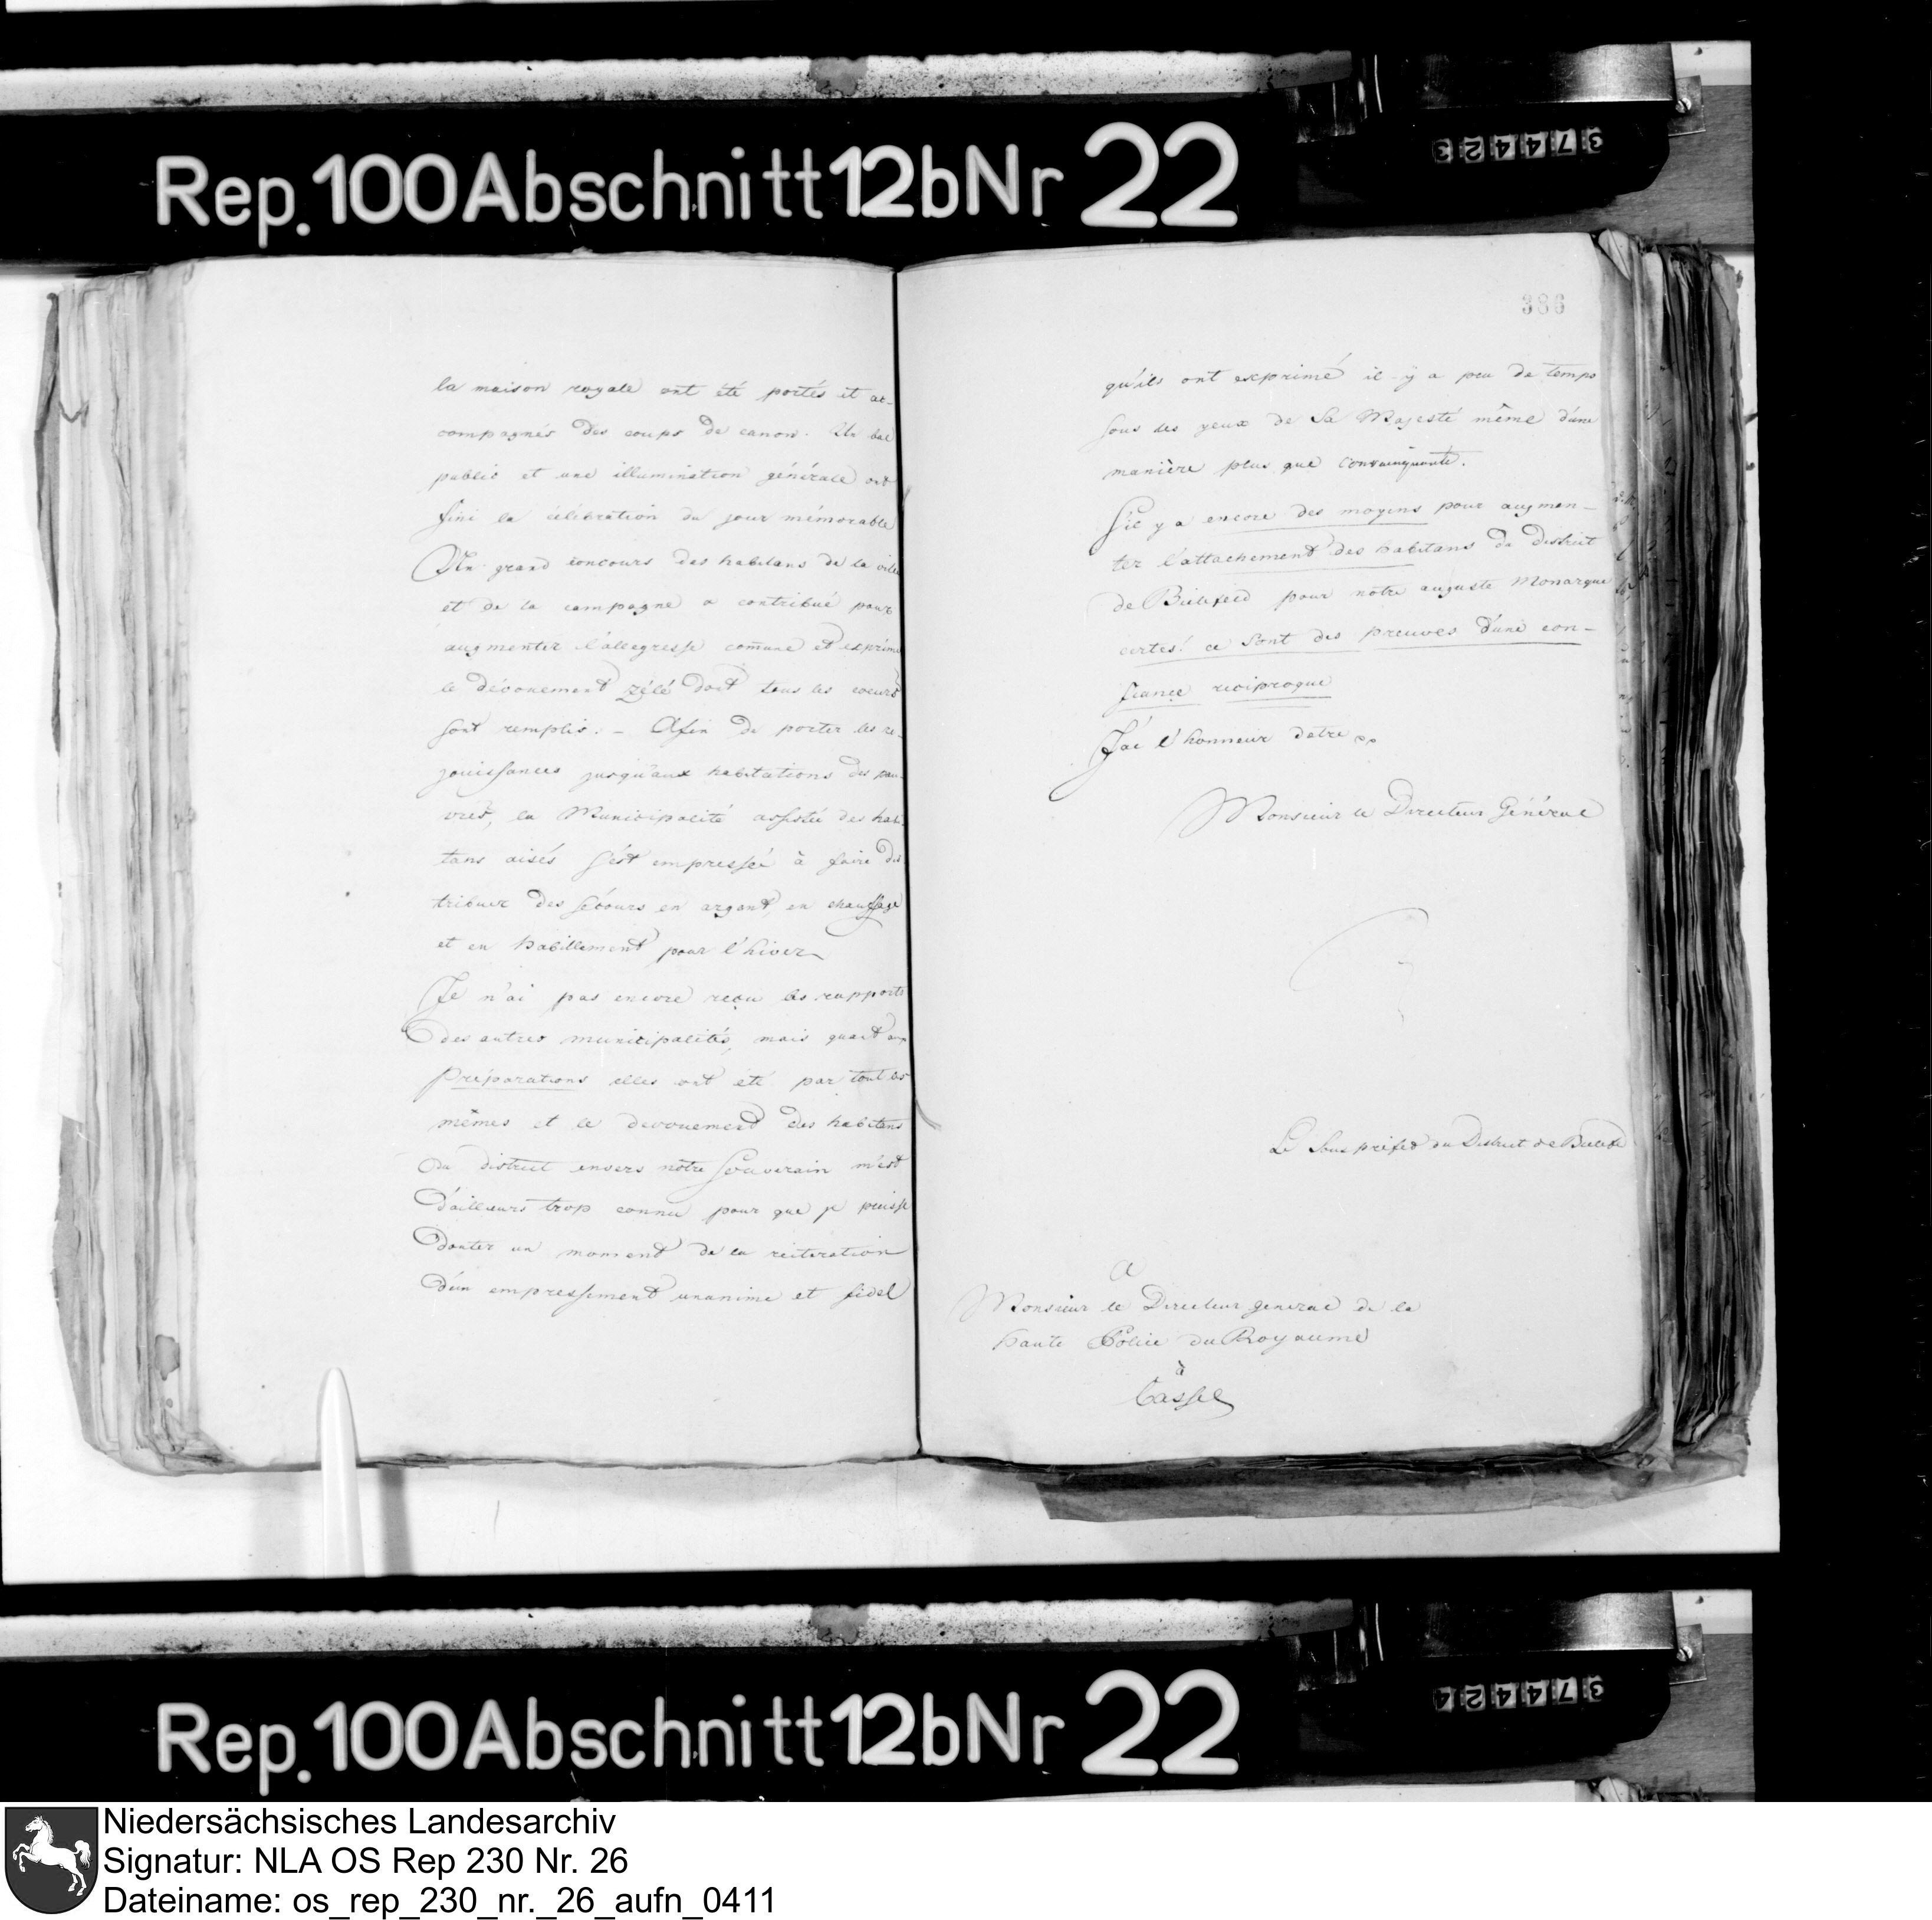 Rep. 100 Abschnitt 12b Nr 22
374423
la maison royale ont été portés et ac-
compagnés des coups de canon. Un bal
public et une illumination générale ont
fini la célébration du jour mémorable
Un grand concours des habitans de la ville
et de la campagne a contribué pour
augmenter l'allegresse comune et exprimé
le dévouement zélé dont tous les coeurs
sont remplis. – Afin de porter les re-
jouissances jusqu'aux habitations des pau-
vres, la Municipalité assistée des habi-
tans aisés s'est empressée à faire dis
tribuer des secours en argent, en chauffage
et en habillement pour l'hiver
Je n'ai pas encore reçu les rapports
des autres municipalités, mais quant aux
préparations elles ont été par tout les
mêmes et le devouement des habitans
du district envers notre Souverain m'est
d'ailleurs trop connu pour que je puisse
douter un moment de la reiteration
d'un empressement unanime et fidel
386
qu'ils ont exprimé il-y a peu de temps
sous les yeux de Sa Majesté même d'une
manière plus que convainquante.
S'il y a encore des moyens pour augmen-
ter l'attachement des habitans du district
de Bielefeld pour notre auguste Monarque
certes! ce sont des preuves d'une con-
fiance reciproque
J'ai l'honneur detre
Monsieur le Directeur Général
Le Sous préfet du District de Bielefe
A
Monsieur le Directeur general de la
haute Police du Royaume
à
Cassel
Rep. 100 Abschnitt 12b Nr 22
374424
Niedersächsisches Landesarchiv
Signatur: NLA OS Rep 230 Nr. 26
Dateiname: os_rep_230_nr._26_aufn_0411